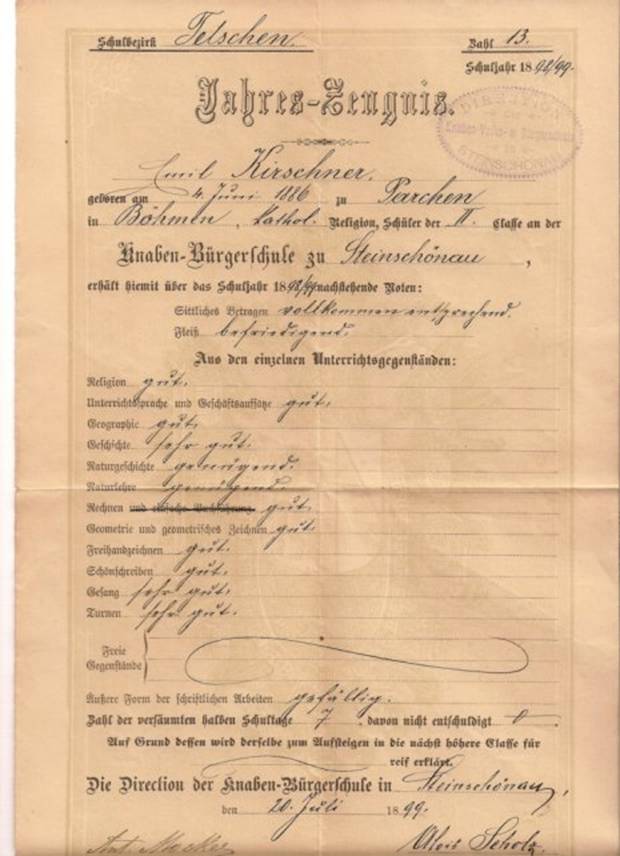 Schulbezirk Tetschen.
Zahl 13.
Schuljahr 1898/99.
Jahres-Zeugnis.
DIREKTION
STEINSCHÖNAU
Emil Kirschner,
geboren am 4. Juni 1886 zu Parchen
in Böhmen, kathol. Religion, Schüler der II. Classe an der
Knaben-Bürgerschule zu Steinschönau,
erhält hiemit über das Schuljahr 1898/99 nachstehende Noten:
Sittliches Betragen vollkommen entsprechend.
Fleiß befriedigend.
Aus den einzelnen Unterrichtsgegenständen:
Religion gut.
Unterrichtssprache und Geschäftsaufsätze gut.
Geographie gut.
Geschichte sehr gut.
Naturgeschichte genügend.
Naturlehre genügend.
Rechnen und einfache Buchführung gut.
Geometrie und geometrisches Zeichnen gut.
Freihandzeichnen gut.
Schönschreiben gut.
Gesang sehr gut.
Turnen sehr gut.
Freie
Gegenstände
Äußere Form der schriftlichen Arbeiten gefällig.
Zahl der versäumten halben Schultage 7, davon nicht entschuldigt 0.
Auf Grund dessen wird derselbe zum Aufsteigen in die nächst höhere Classe für
reif erklärt.
Die Direction der Knaben-Bürgerschule in Steinschönau,
den 20. Juli 1899.
Ant. Mocker
Alois Scholz